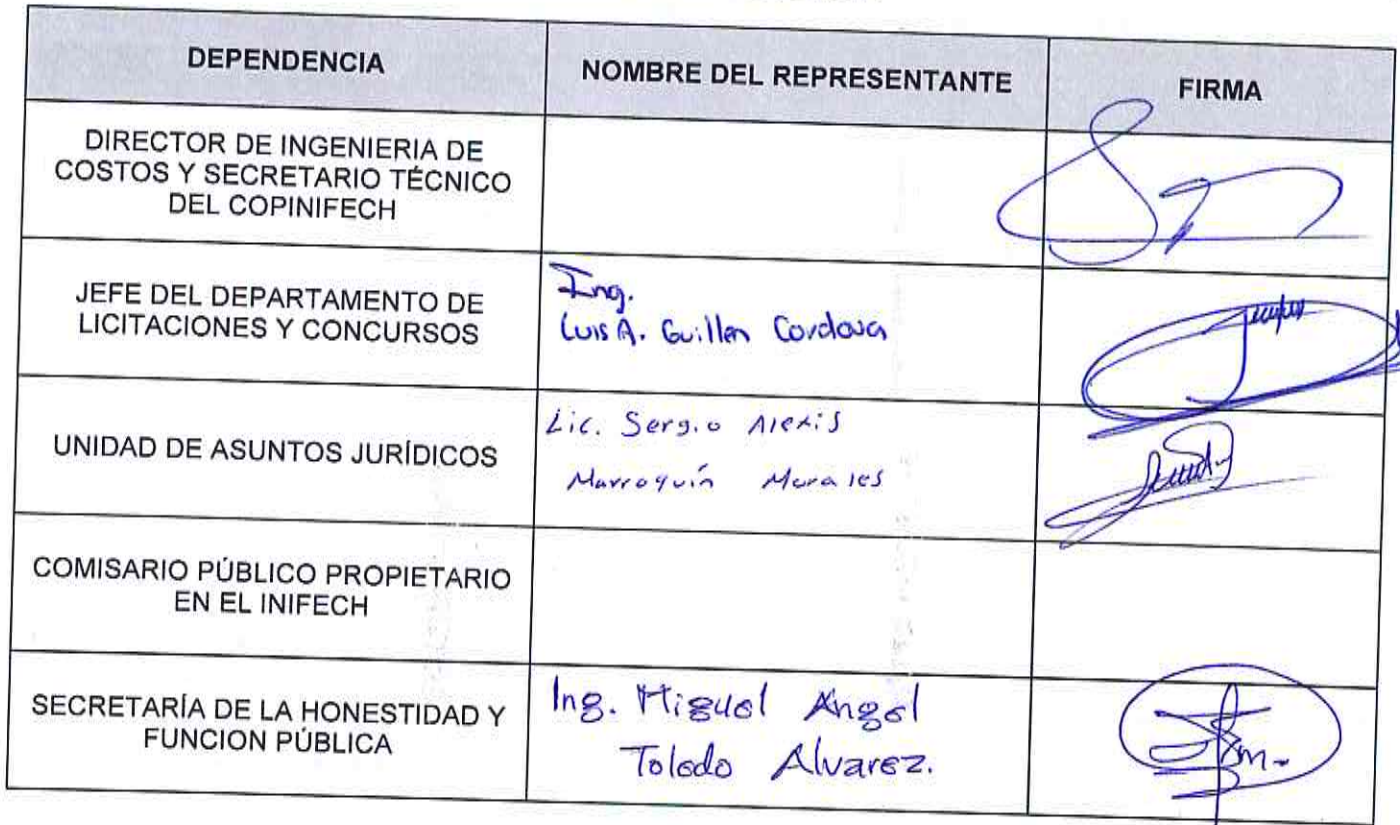 DEPENDENCIA
NOMBRE DEL REPRESENTANTE
FIRMA
DIRECTOR DE INGENIERIA DE
COSTOS Y SECRETARIO TÉCNICO
DEL COPINIFECH
JEFE DEL DEPARTAMENTO DE
LICITACIONES Y CONCURSOS
Ing.
Luis A. Guillen Cordova
UNIDAD DE ASUNTOS JURÍDICOS
Lic. Sergio Alexis
Marroquín Morales
COMISARIO PÚBLICO PROPIETARIO
EN EL INIFECH
SECRETARÍA DE LA HONESTIDAD Y
FUNCION PÚBLICA
Ing. Miguel Angel
Toledo Alvarez.